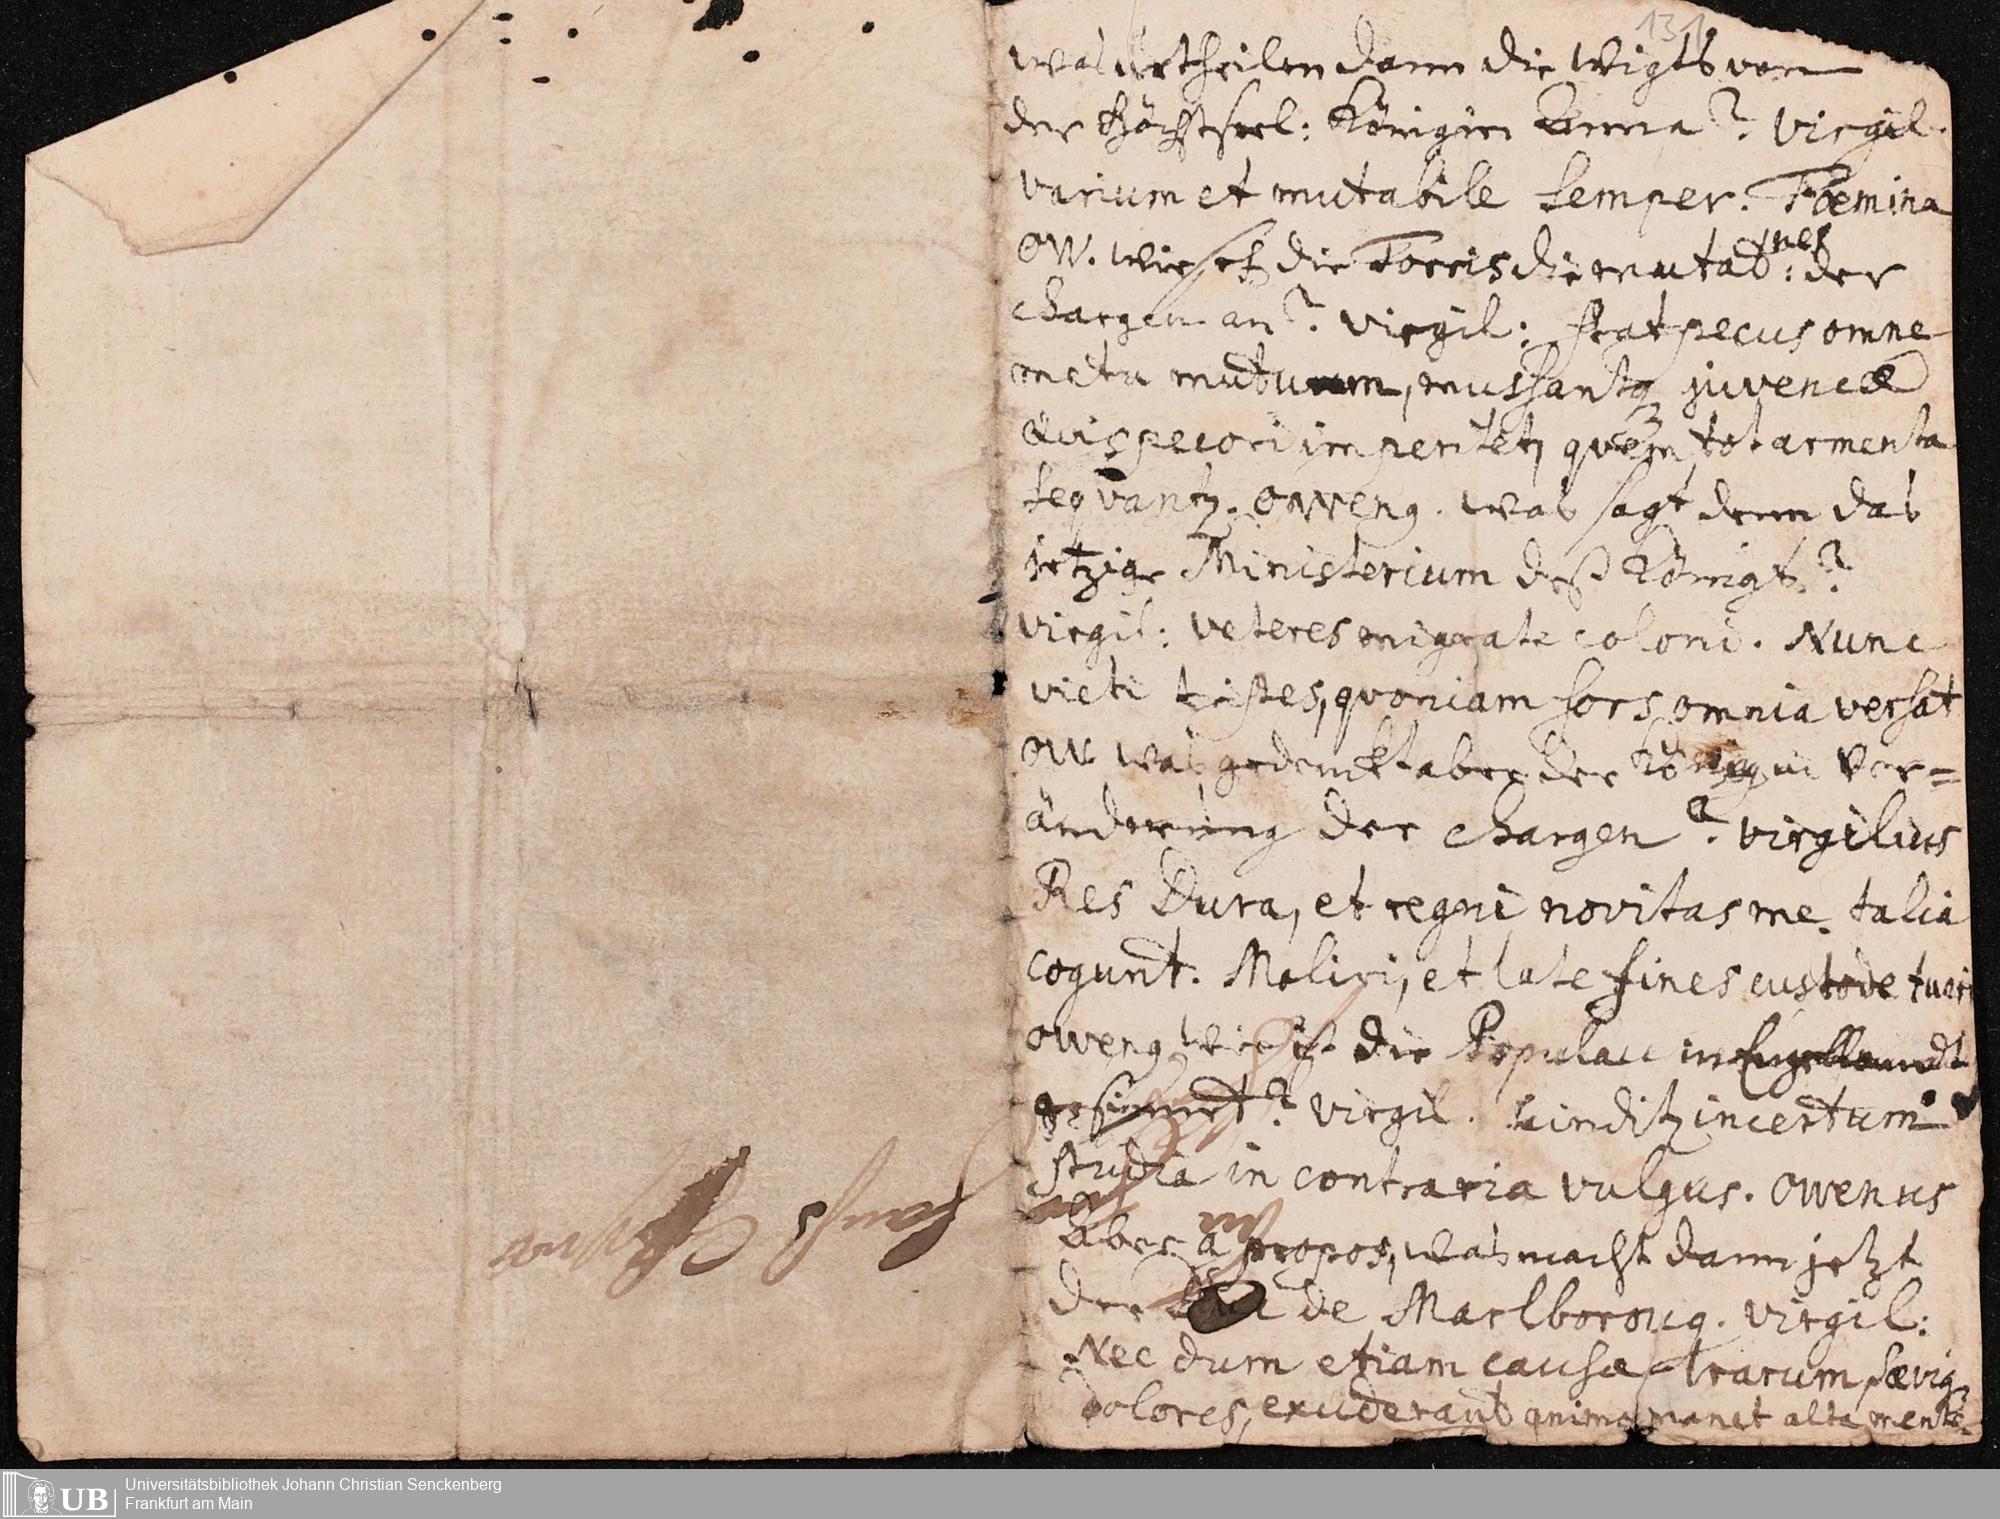 131
was urtheilen dann die Wigts von
der Höchstseel: Königin Anna? Virgil.
varium et mutabile semper. Foemina
OW. wie sehen die Torris die mutat:nes der
chargen an? Virgil: stat pecus omne
metu mutum, mussantq juvencæ
Qvis pecori imperitet, qvem tot armenta
seqvantz. Oweng. was sagt denn das
jetzige Ministerium deß Königs?
virgil: veteres migrate coloni. Nunc
victi tristes, qvoniam sors omnia versat
OW. was gedenckt aber der König in Ver=
änderung der chargen? virgilius
Res Dura, et regni novitas me talia
cogunt. Moliri, et late fines custode tueri
Oweng wie ist die Populace in Engellandt
gesinnet? virgil. scinditz incertum
studia in contraria vulgus. Owenus
Aber a propos, was macht dann jetzt
der Duc de Marlboroug. virgil:
Nec dum etiam causæ irarum, sæviq
dolores, exciderant animo manet alta mente
Universitätsbibliothek Johann Christian Senckenberg
Frankfurt am Main
UB